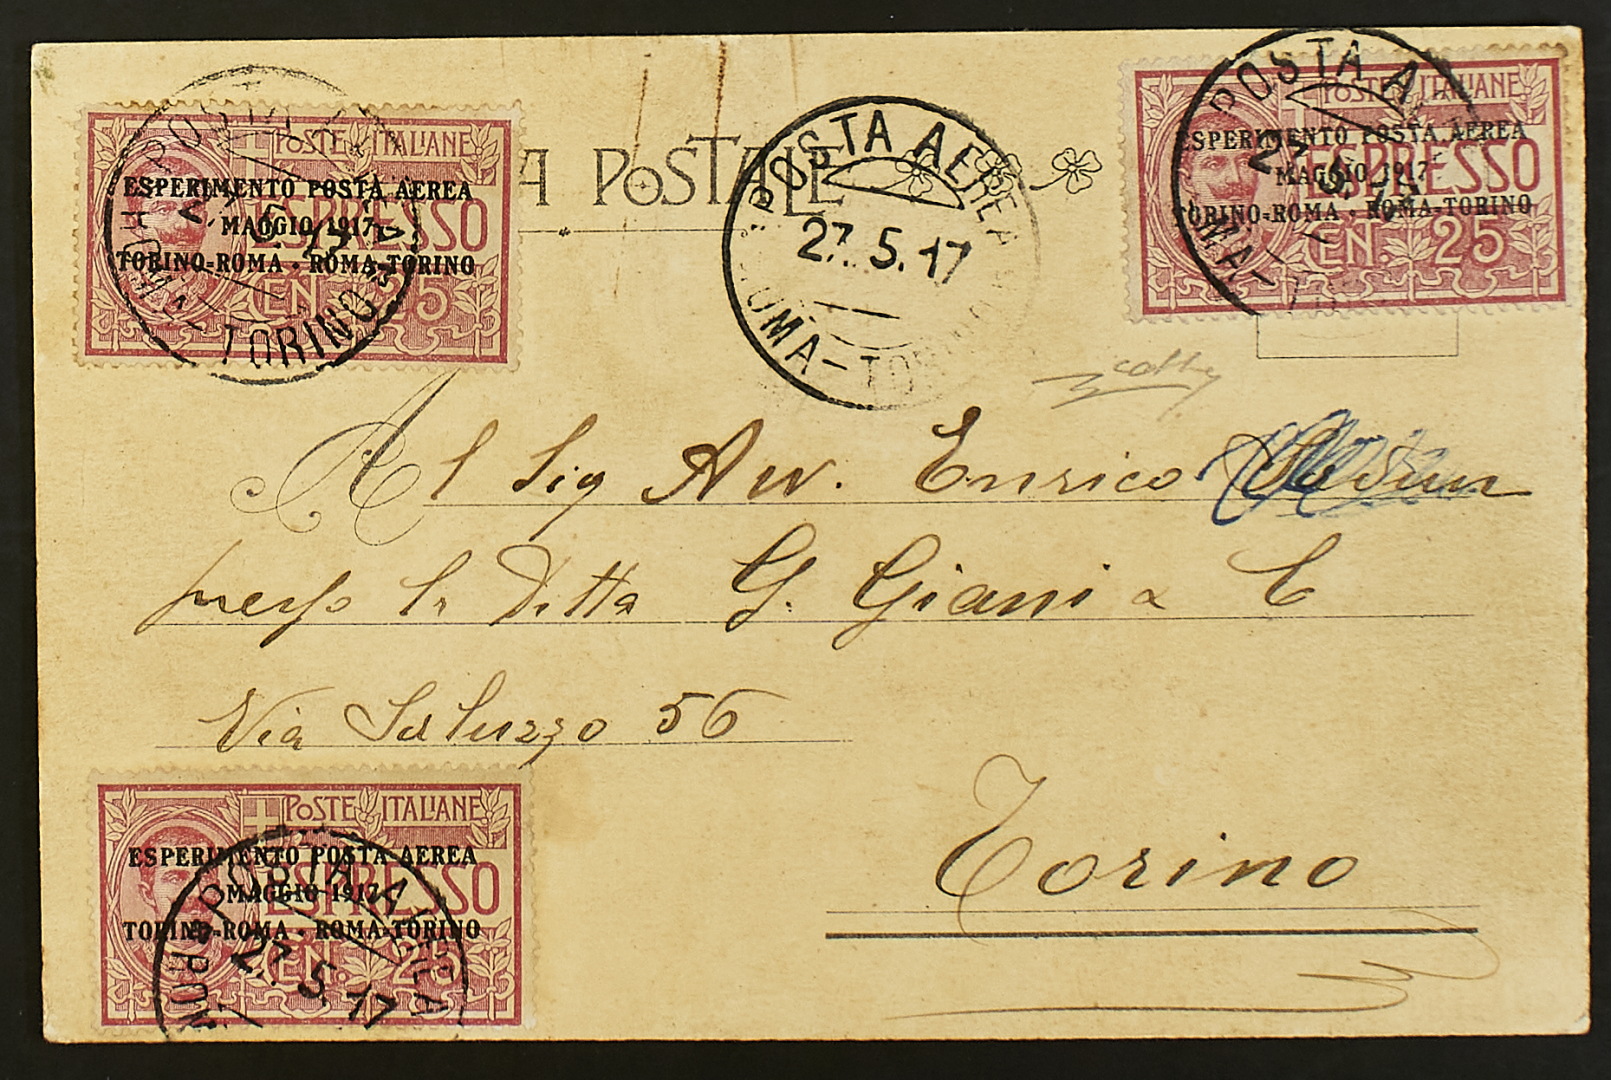 POSTE ITALIANE
ESPRESSO
CEN. 25
ESPERIMENTO POSTA AEREA
MAGGIO 1917
TORINO=ROMA · ROMA-TORINO
POSTA
27.5.17
ROMA - TORINO
A POSTALE
POSTA AEREA
27.5.17
ROMA-TORINO
POSTE ITALIANE
ESPRESSO
CEN. 25
ESPERIMENTO POSTA AEREA
MAGGIO 1917
TORINO=ROMA · ROMA-TORINO
POSTA A
27.5.17
ROMA-
Al Sig Avv. Enrico
presso la Ditta G. Giani & C
Via Saluzzo 56
Torino
POSTE ITALIANE
ESPRESSO
CEN. 25
ESPERIMENTO POSTA AEREA
MAGGIO 1917
TORINO-ROMA · ROMA-TORINO
POSTA AEREA
27.5.17
ROM